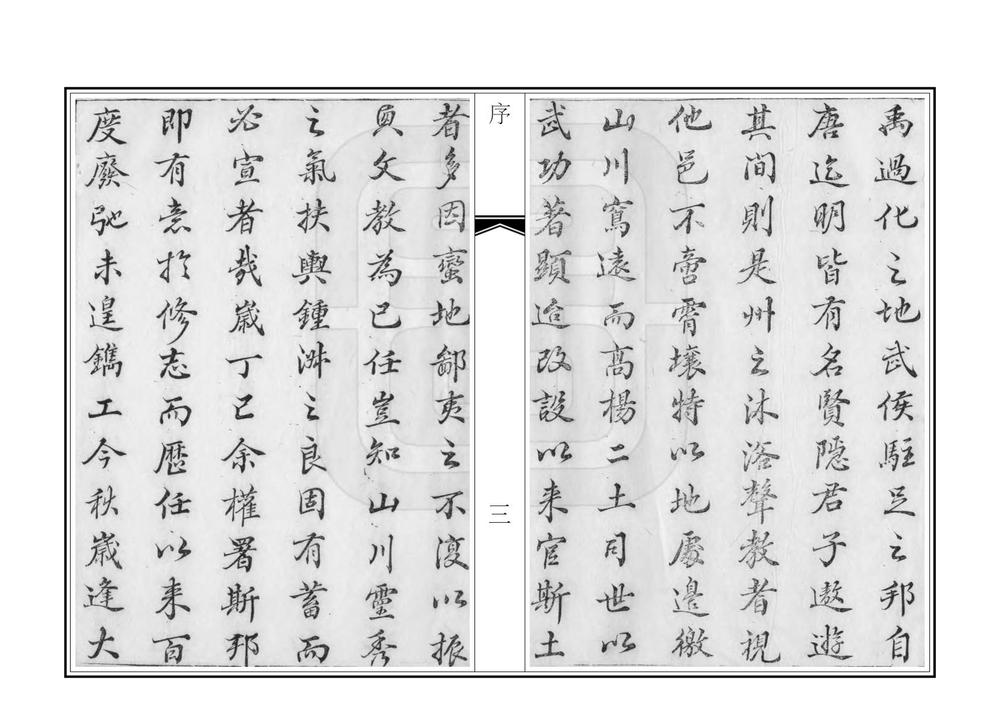 禹過化之地武侯駐足之邦自
唐迄明皆有名賢隱君子遨遊
其間則是州之沐浴聲教者視
他邑不啻霄壤特以地處邊徼
山川窵遠而高楊二土司世以
武功著顯迨改設以来官斯土
序
三
者多因蠻地鄙夷之不復以振
興文教為已任豈知山川靈秀
之氣扶輿鍾淑之良固有蓄而
必宣者哉歲丁巳余權署斯邦
即有意扵修志而歷任以来百
度廢弛未遑鐫工今秋歲逢大